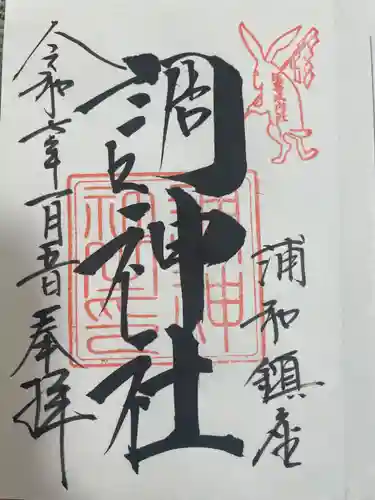 浦和鎮座
調神社
令和六年一月五日奉拝